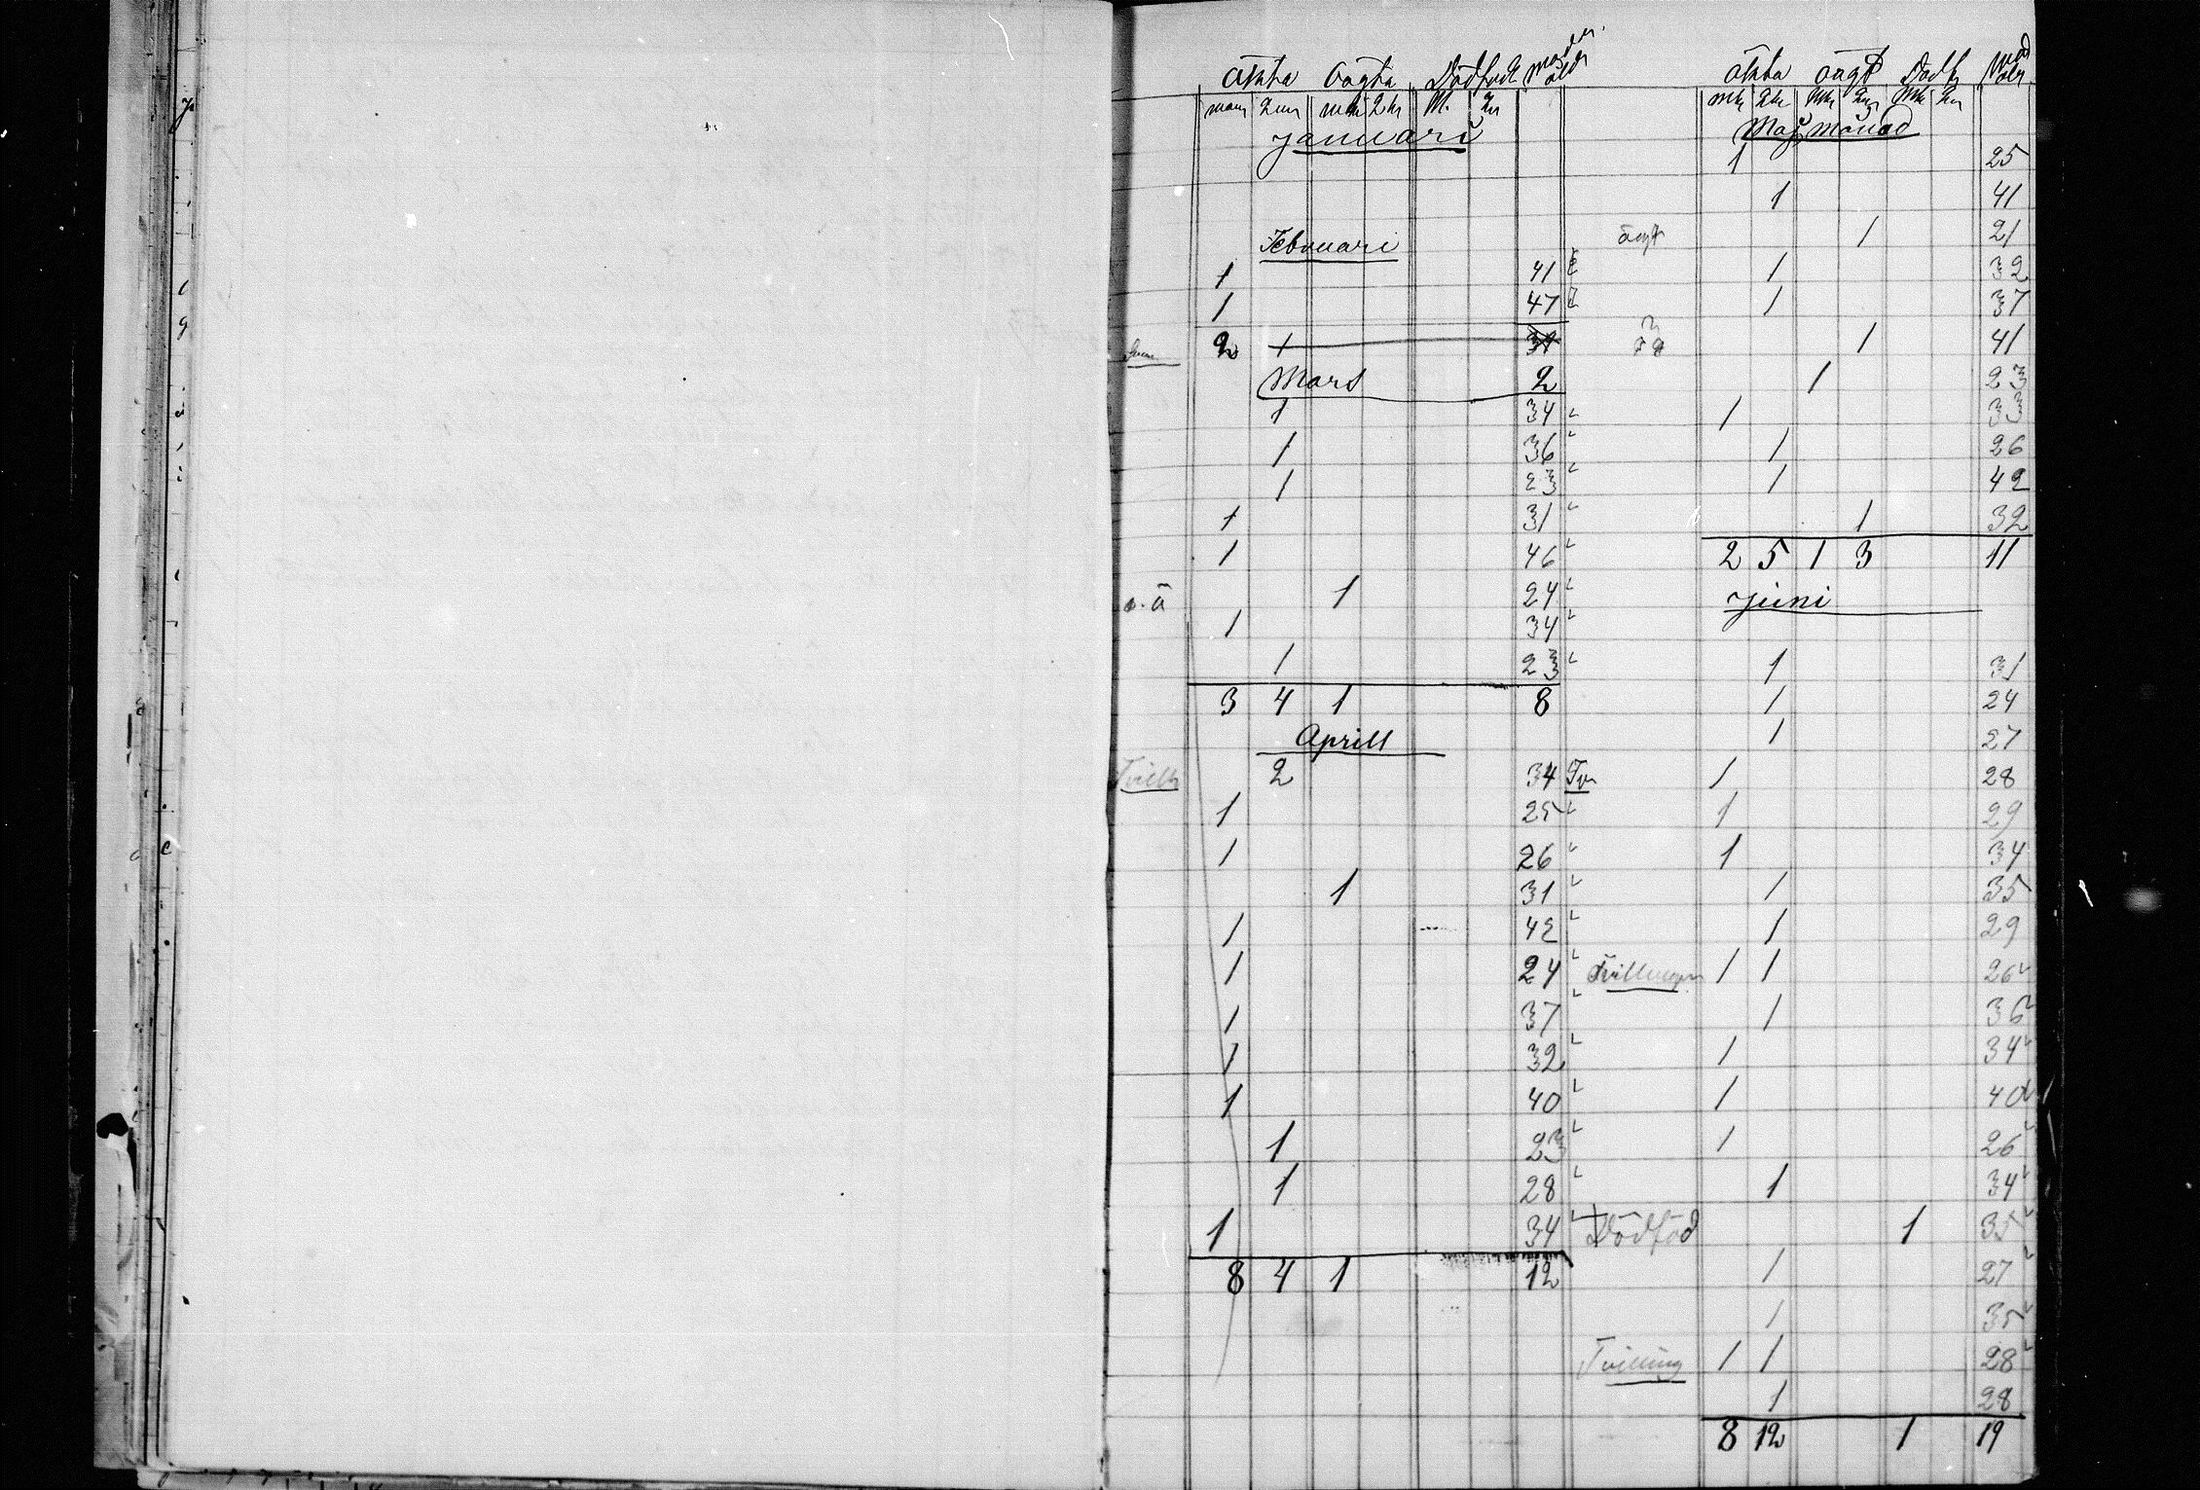 äkta oägta Dödfödt moder åld
man qun man qkr M. qn
Januari
Februari
1 41
1 47
Sum 2 1 31
Mars 2
1 34
1 36
1 23
1 31
1 46
o.ä 1 24
1 34
1 23
3 4 1 8
Aprill
Tvill 2 34 Tv
1 25
1 26
1 31
1 42
1 24
1 37
1 32
1 40
1 23
1 28
1 34
8 4 1 12
äkta oägt Dödf mod åldr
mk qk mk qn mk qn
Maj månad
1 25
1 41
oägt 1 21
1 32
1 37
1 41
1 23
1 33
1 26
1 42
1 32
2 5 1 3 11
Juni
1 31
1 24
1 27
1 28
1 29
1 34
1 35
1 29
Tvillingar 1 1 26
1 36
1 34
1 40
1 26
1 34
Dödföd 1 35
1 27
1 35
Tvilling 1 1 28
1 28
8 12 1 19